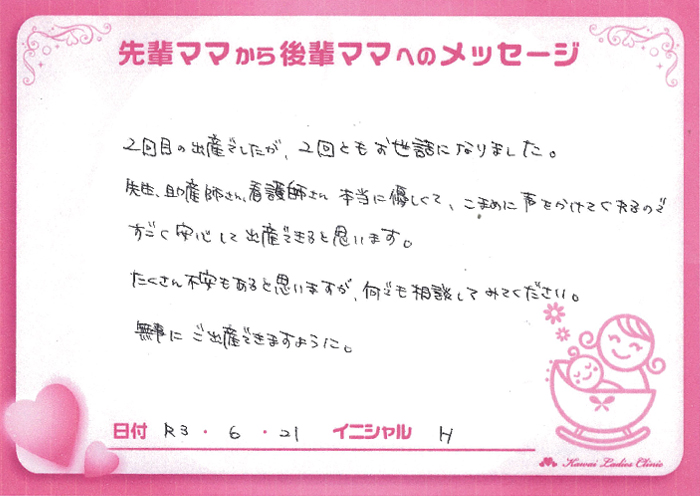 先輩ママから後輩ママへのメッセージ
2回目の出産でしたが、2回ともお世話になりました。
先生、助産師さん、看護師さん 本当に優しくて、こまめに声をかけてくれるので
すごく安心して出産できると思います。
たくさん不安もあると思いますが、何でも相談してみてください。
無事にご出産できますように。
日付 R3・6・21 イニシャル H
Kawai Ladies Clinic